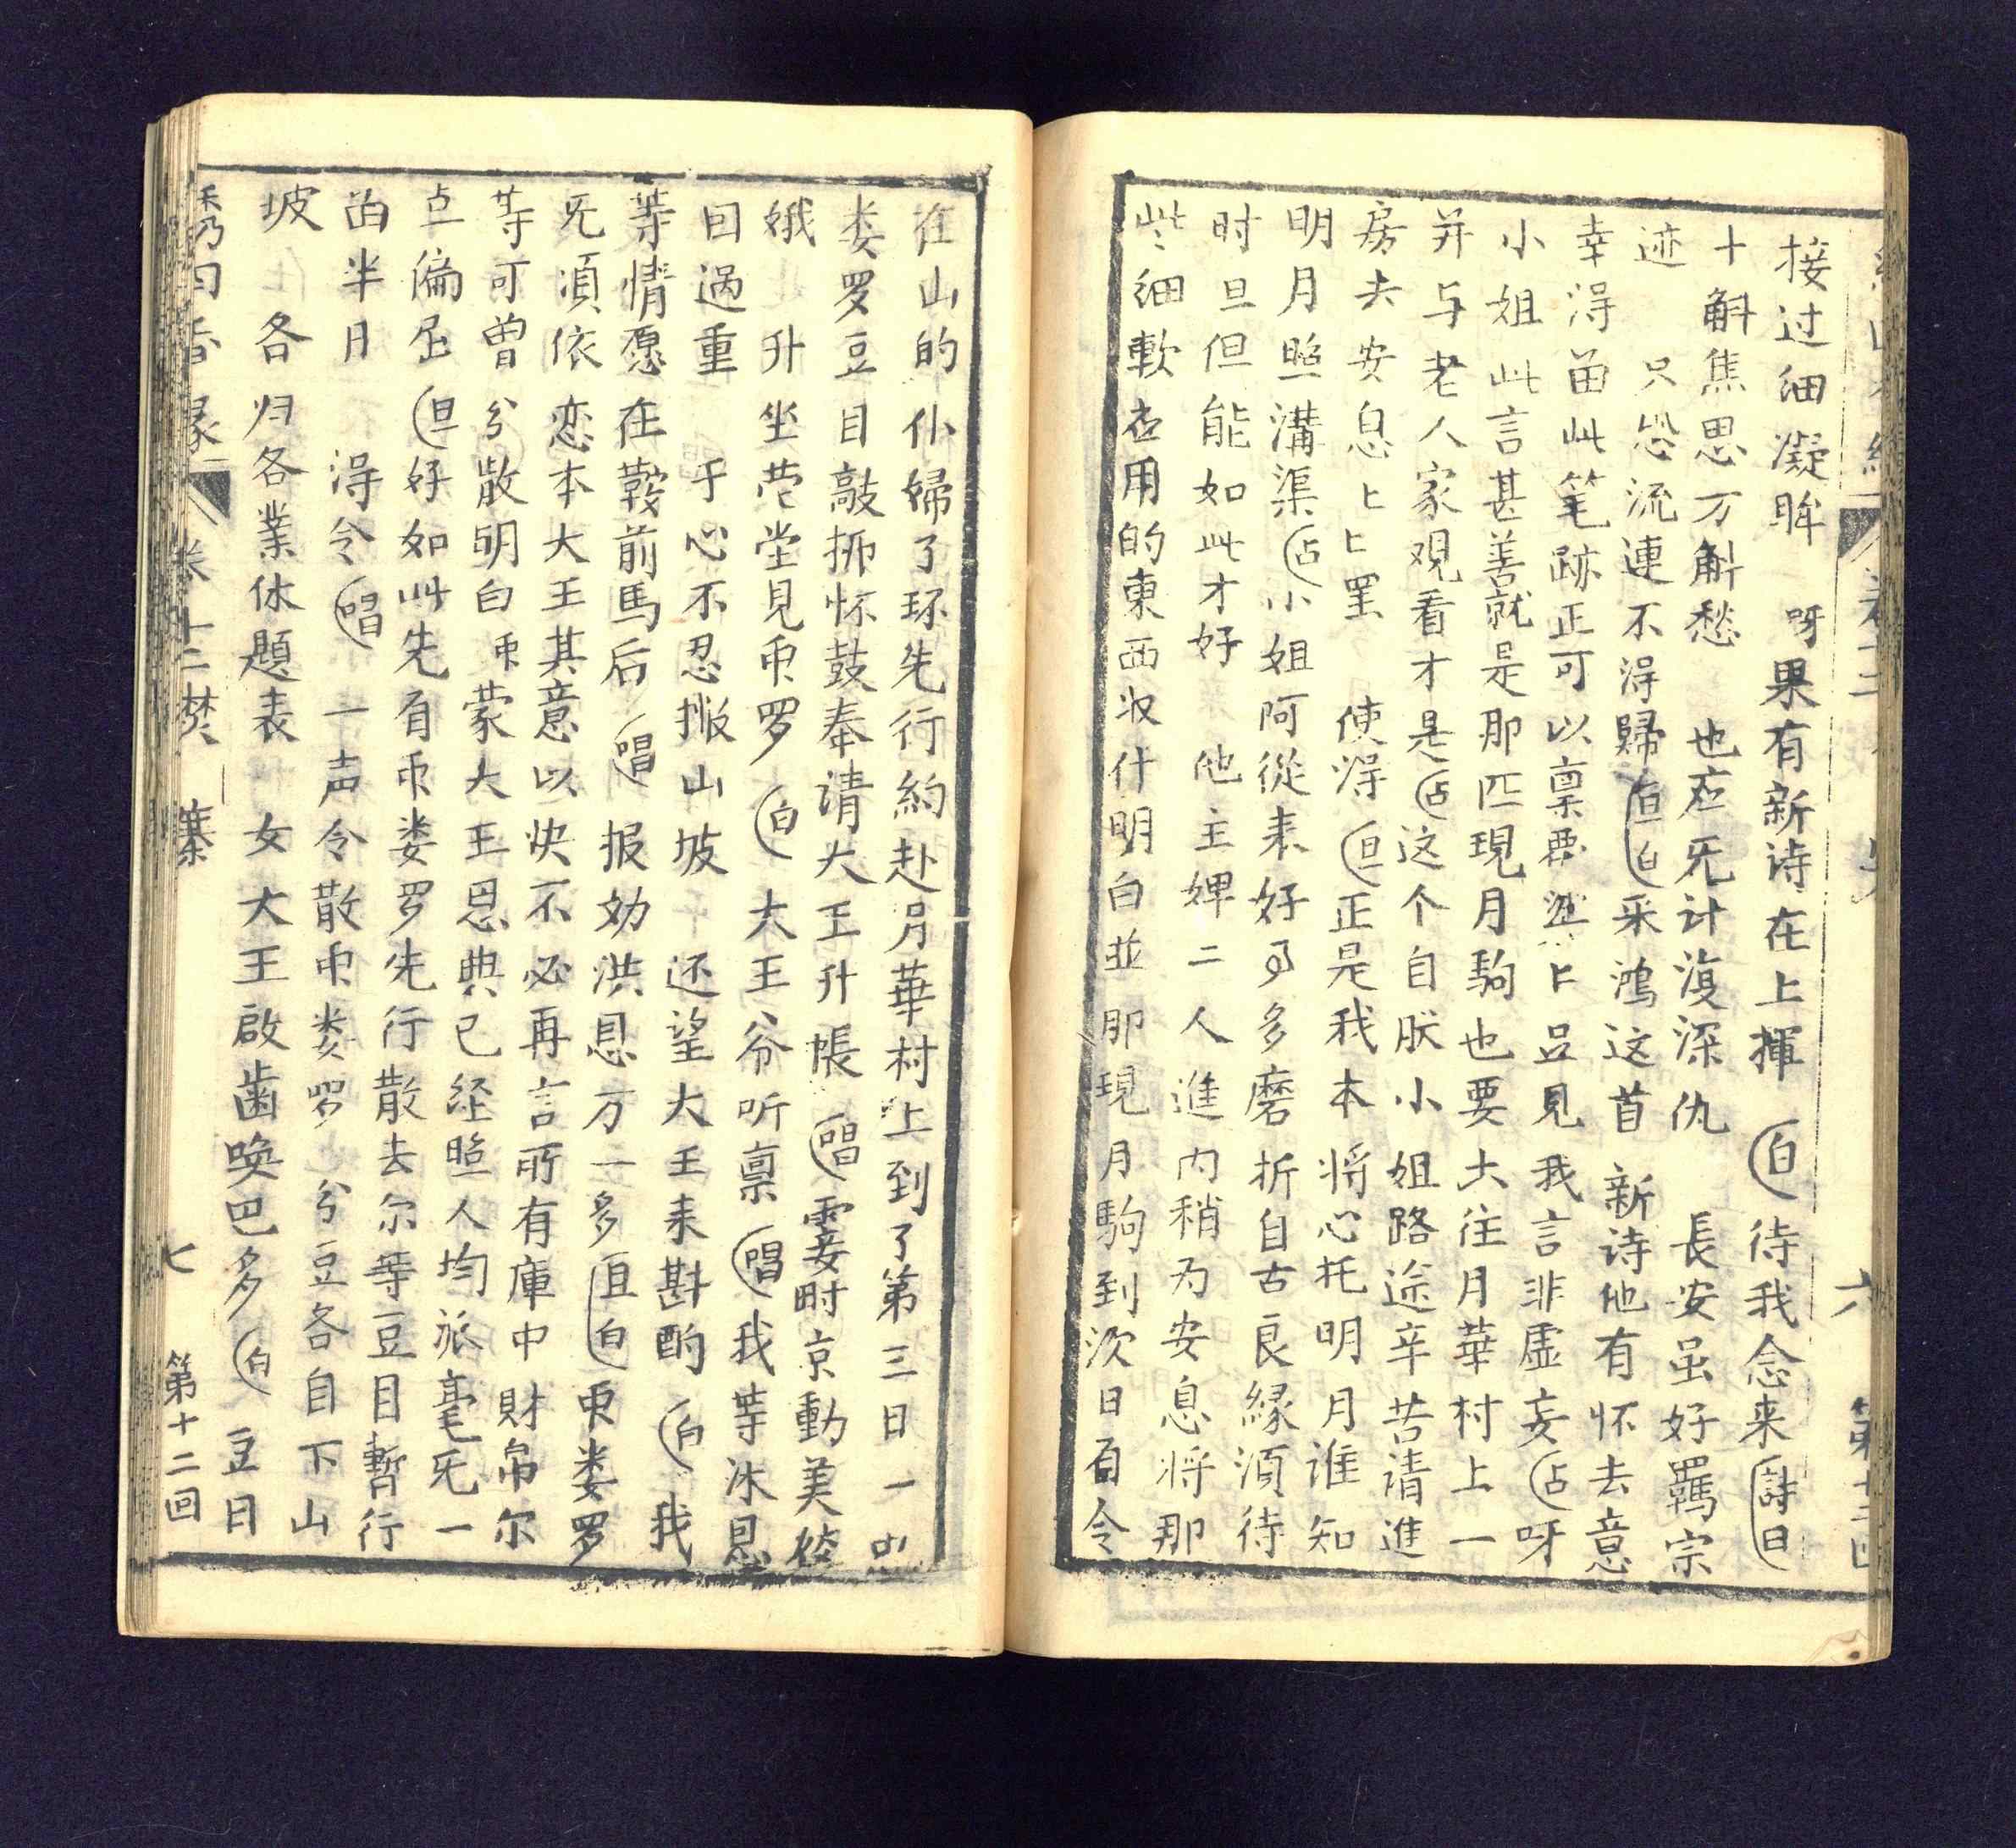 接过细凝眸　呀果有新诗在上揮　白待我念来詩曰
十斛焦思万斛愁　也应旡计復深仇　長安虽好羈宗
迹　只恐流連不淂歸旦白采鴻这首新诗他有怀去意
幸淂畄此笔跡正可以禀　上品見我言非虚妄占呀
小姐此言甚善就是那匹現月駒也要去往月華村上一
并与老人家观看才是占这个自肰小姐路途辛苦请進
房去安息　使淂旦正是我本将心托明月谁知
明月照溝渠占小姐阿從来好多磨折自古良緣湏待
时旦但能如此才好　他主婢二人進内稍为安息将那
些细軟应用的東西收什明白並那現月駒到次日百令
在山的仆婦了环先行約赴月華村上到了第三日一
娄罗豆目敲抑怀鼓奉请大王升帳　唱霎时京動美姣
娥　升坐茫堂見币罗　白大王爷听禀唱我等沐恩
囙过重　于心不忍撇山坡　还望大王来斟酌白我
等情愿在鞍前馬后唱报効洪恩万一多旦白币娄罗
旡湏依恋本大王其意以快不必再言所有庫中財帛尔
等可曾分散明白币蒙大王恩典已经照人均派毫旡一
点偏屈旦好如此先有币娄罗先行散去尔等豆目暫行
畄半月　淂令唱一声令散币娄罗　分豆各自下山
坡　各归各業休題表　女大王啟齒唤巴多白豆日
卷十二焚寨　七　第十二回